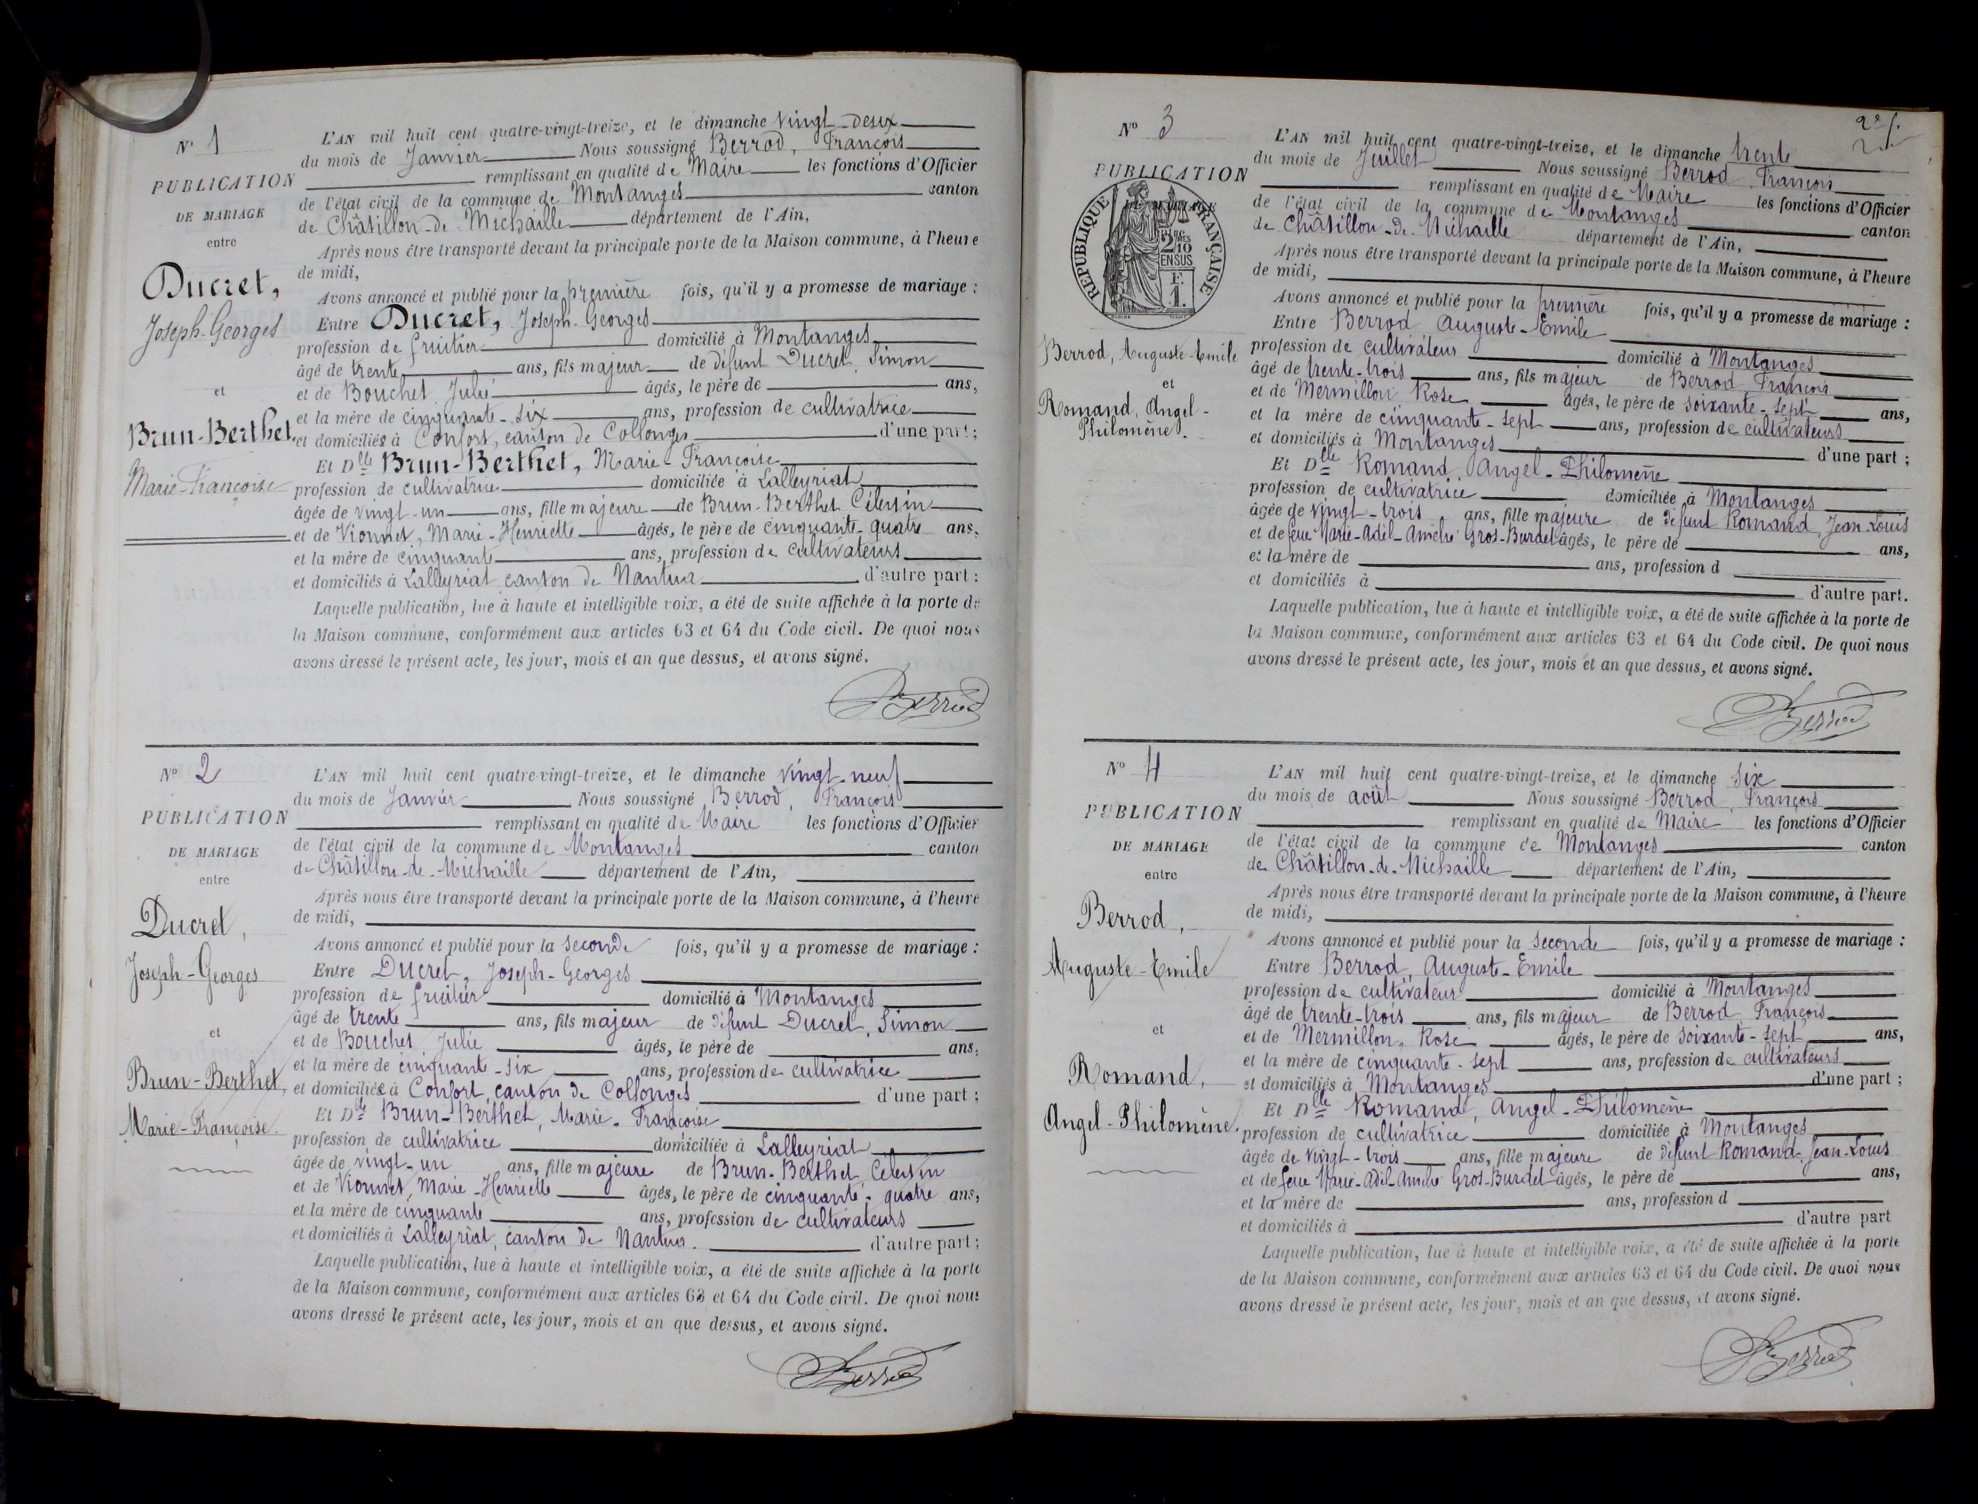 N° 1
PUBLICATION
DE MARIAGE
entre
Ducret,
Joseph-Georges
et
Brun-Berthet
Marie-Françoise
L'AN mil huit cent quatre-vingt-treize, et le dimanche vingt-deux
du mois de Janvier Nous soussigné Berrod, François
remplissant en qualité de Maire les fonctions d'Officier
de l'état civil de la commune de Montanges canton
de Châtillon-de-Michaille département de l'Ain,
Après nous être transporté devant la principale porte de la Maison commune, à l'heure
de midi,
Avons annoncé et publié pour la première fois, qu'il y a promesse de mariage :
Entre Ducret, Joseph-Georges
profession de fruitier domicilié à Montanges
âgé de trente ans, fils majeur de défunt Ducret, Simon
et de Bouchet Julie âgés, le père de ans,
et la mère de cinquante-six ans, profession de cultivatrice
et domiciliés à Confort, canton de Collonges d'une part;
Et Dlle Brun-Berthet, Marie-Françoise
profession de cultivatrice domiciliée à Lalleyriat
âgée de vingt-un ans, fille majeure de Brun-Berthet Célestin
et de Vionnet, Marie-Henriette âgés, le père de cinquante-quatre ans,
et la mère de cinquante ans, profession de cultivateurs
et domiciliés à Lalleyriat canton de Nantua d'autre part;
Laquelle publication, lue à haute et intelligible voix, a été de suite affichée à la porte de
la Maison commune, conformément aux articles 63 et 64 du Code civil. De quoi nous
avons dressé le présent acte, les jour, mois et an que dessus, et avons signé.
Berrod
N° 2
PUBLICATION
DE MARIAGE
entre
Ducret,
Joseph-Georges
et
Brun-Berthet,
Marie-Françoise.
L'AN mil huit cent quatre-vingt-treize, et le dimanche vingt-neuf
du mois de Janvier Nous soussigné Berrod, François
remplissant en qualité de Maire les fonctions d'Officier
de l'état civil de la commune de Montanges canton
de Châtillon-de-Michaille département de l'Ain,
Après nous être transporté devant la principale porte de la Maison commune, à l'heure
de midi,
Avons annoncé et publié pour la seconde fois, qu'il y a promesse de mariage :
Entre Ducret, Joseph-Georges
profession de fruitier domicilié à Montanges
âgé de trente ans, fils majeur de défunt Ducret, Simon
et de Bouchet Julie âgés, le père de ans,
et la mère de cinquante-six ans, profession de cultivatrice
et domiciliés à Confort, canton de Collonges d'une part;
Et Dlle Brun-Berthet, Marie-Françoise
profession de cultivatrice domiciliée à Lalleyriat
âgée de vingt-un ans, fille majeure de Brun-Berthet Célestin
et de Vionnet, Marie-Henriette âgés, le père de cinquante-quatre ans,
et la mère de cinquante ans, profession de cultivateurs
et domiciliés à Lalleyriat, canton de Nantua. d'autre part;
Laquelle publication, lue à haute et intelligible voix, a été de suite affichée à la porte
de la Maison commune, conformément aux articles 63 et 64 du Code civil. De quoi nous
avons dressé le présent acte, les jour, mois et an que dessus, et avons signé.
Berrod
N° 3
PUBLICATION
RÉPUBLIQUE FRANÇAISE
Berrod, Auguste-Emile
et
Romand, Angel-
Philomène.
L'AN mil huit cent quatre-vingt-treize, et le dimanche trente
du mois de Juillet Nous soussigné Berrod, François
remplissant en qualité de Maire les fonctions d'Officier
de l'état civil de la commune de Montanges canton
de Châtillon-de-Michaille département de l'Ain,
Après nous être transporté devant la principale porte de la Maison commune, à l'heure
de midi,
Avons annoncé et publié pour la première fois, qu'il y a promesse de mariage :
Entre Berrod Auguste-Emile
profession de cultivateur domicilié à Montanges
âgé de trente-trois ans, fils majeur de Berrod François
et de Mermillon Rose âgés, le père de soixante-sept ans,
et la mère de cinquante-sept ans, profession de cultivateurs
et domiciliés à Montanges d'une part ;
Et Dlle Romand Angel-Philomène
profession de cultivatrice domiciliée à Montanges
âgée de vingt-trois ans, fille majeure de défunt Romand, Jean-Louis
et de feue Marie-Adél-Amélie Gros-Burdet âgés, le père de ans,
et la mère de ans, profession d
et domiciliés à d'autre part.
Laquelle publication, lue à haute et intelligible voix, a été de suite affichée à la porte de
la Maison commune, conformément aux articles 63 et 64 du Code civil. De quoi nous
avons dressé le présent acte, les jour, mois et an que dessus, et avons signé.
Berrod
N° 4
PUBLICATION
DE MARIAGE
entre
Berrod,
Auguste-Emile
et
Romand,
Angel-Philomène.
L'AN mil huit cent quatre-vingt-treize, et le dimanche six
du mois de août Nous soussigné Berrod, François
remplissant en qualité de Maire les fonctions d'Officier
de l'état civil de la commune de Montanges canton
de Châtillon-de-Michaille département de l'Ain,
Après nous être transporté devant la principale porte de la Maison commune, à l'heure
de midi,
Avons annoncé et publié pour la seconde fois, qu'il y a promesse de mariage :
Entre Berrod, Auguste-Emile
profession de cultivateur domicilié à Montanges
âgé de trente-trois ans, fils majeur de Berrod François
et de Mermillon, Rose âgés, le père de soixante-sept ans,
et la mère de cinquante-sept ans, profession de cultivateurs
et domiciliés à Montanges d'une part ;
Et Dlle Romand, Angel-Philomène
profession de cultivatrice domiciliée à Montanges
âgée de vingt-trois ans, fille majeure de défunt Romand, Jean-Louis
et de feue Marie-Adél-Amélie Gros-Burdet âgés, le père de ans,
et la mère de ans, profession d
et domiciliés à d'autre part
Laquelle publication, lue à haute et intelligible voix, a été de suite affichée à la porte
de la Maison commune, conformément aux articles 63 et 64 du Code civil. De quoi nous
avons dressé le présent acte, les jour, mois et an que dessus, et avons signé.
Berrod